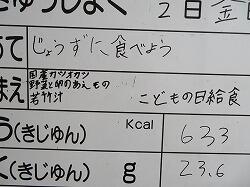 きゅうしょく 2日 金
て じょうずに、食べよう
国産カツオカツ
野菜と卵のあえもの
若竹汁
まえ こどもの日給食
う(きじゅん) Kcal 633
く(きじゅん) g 23.6